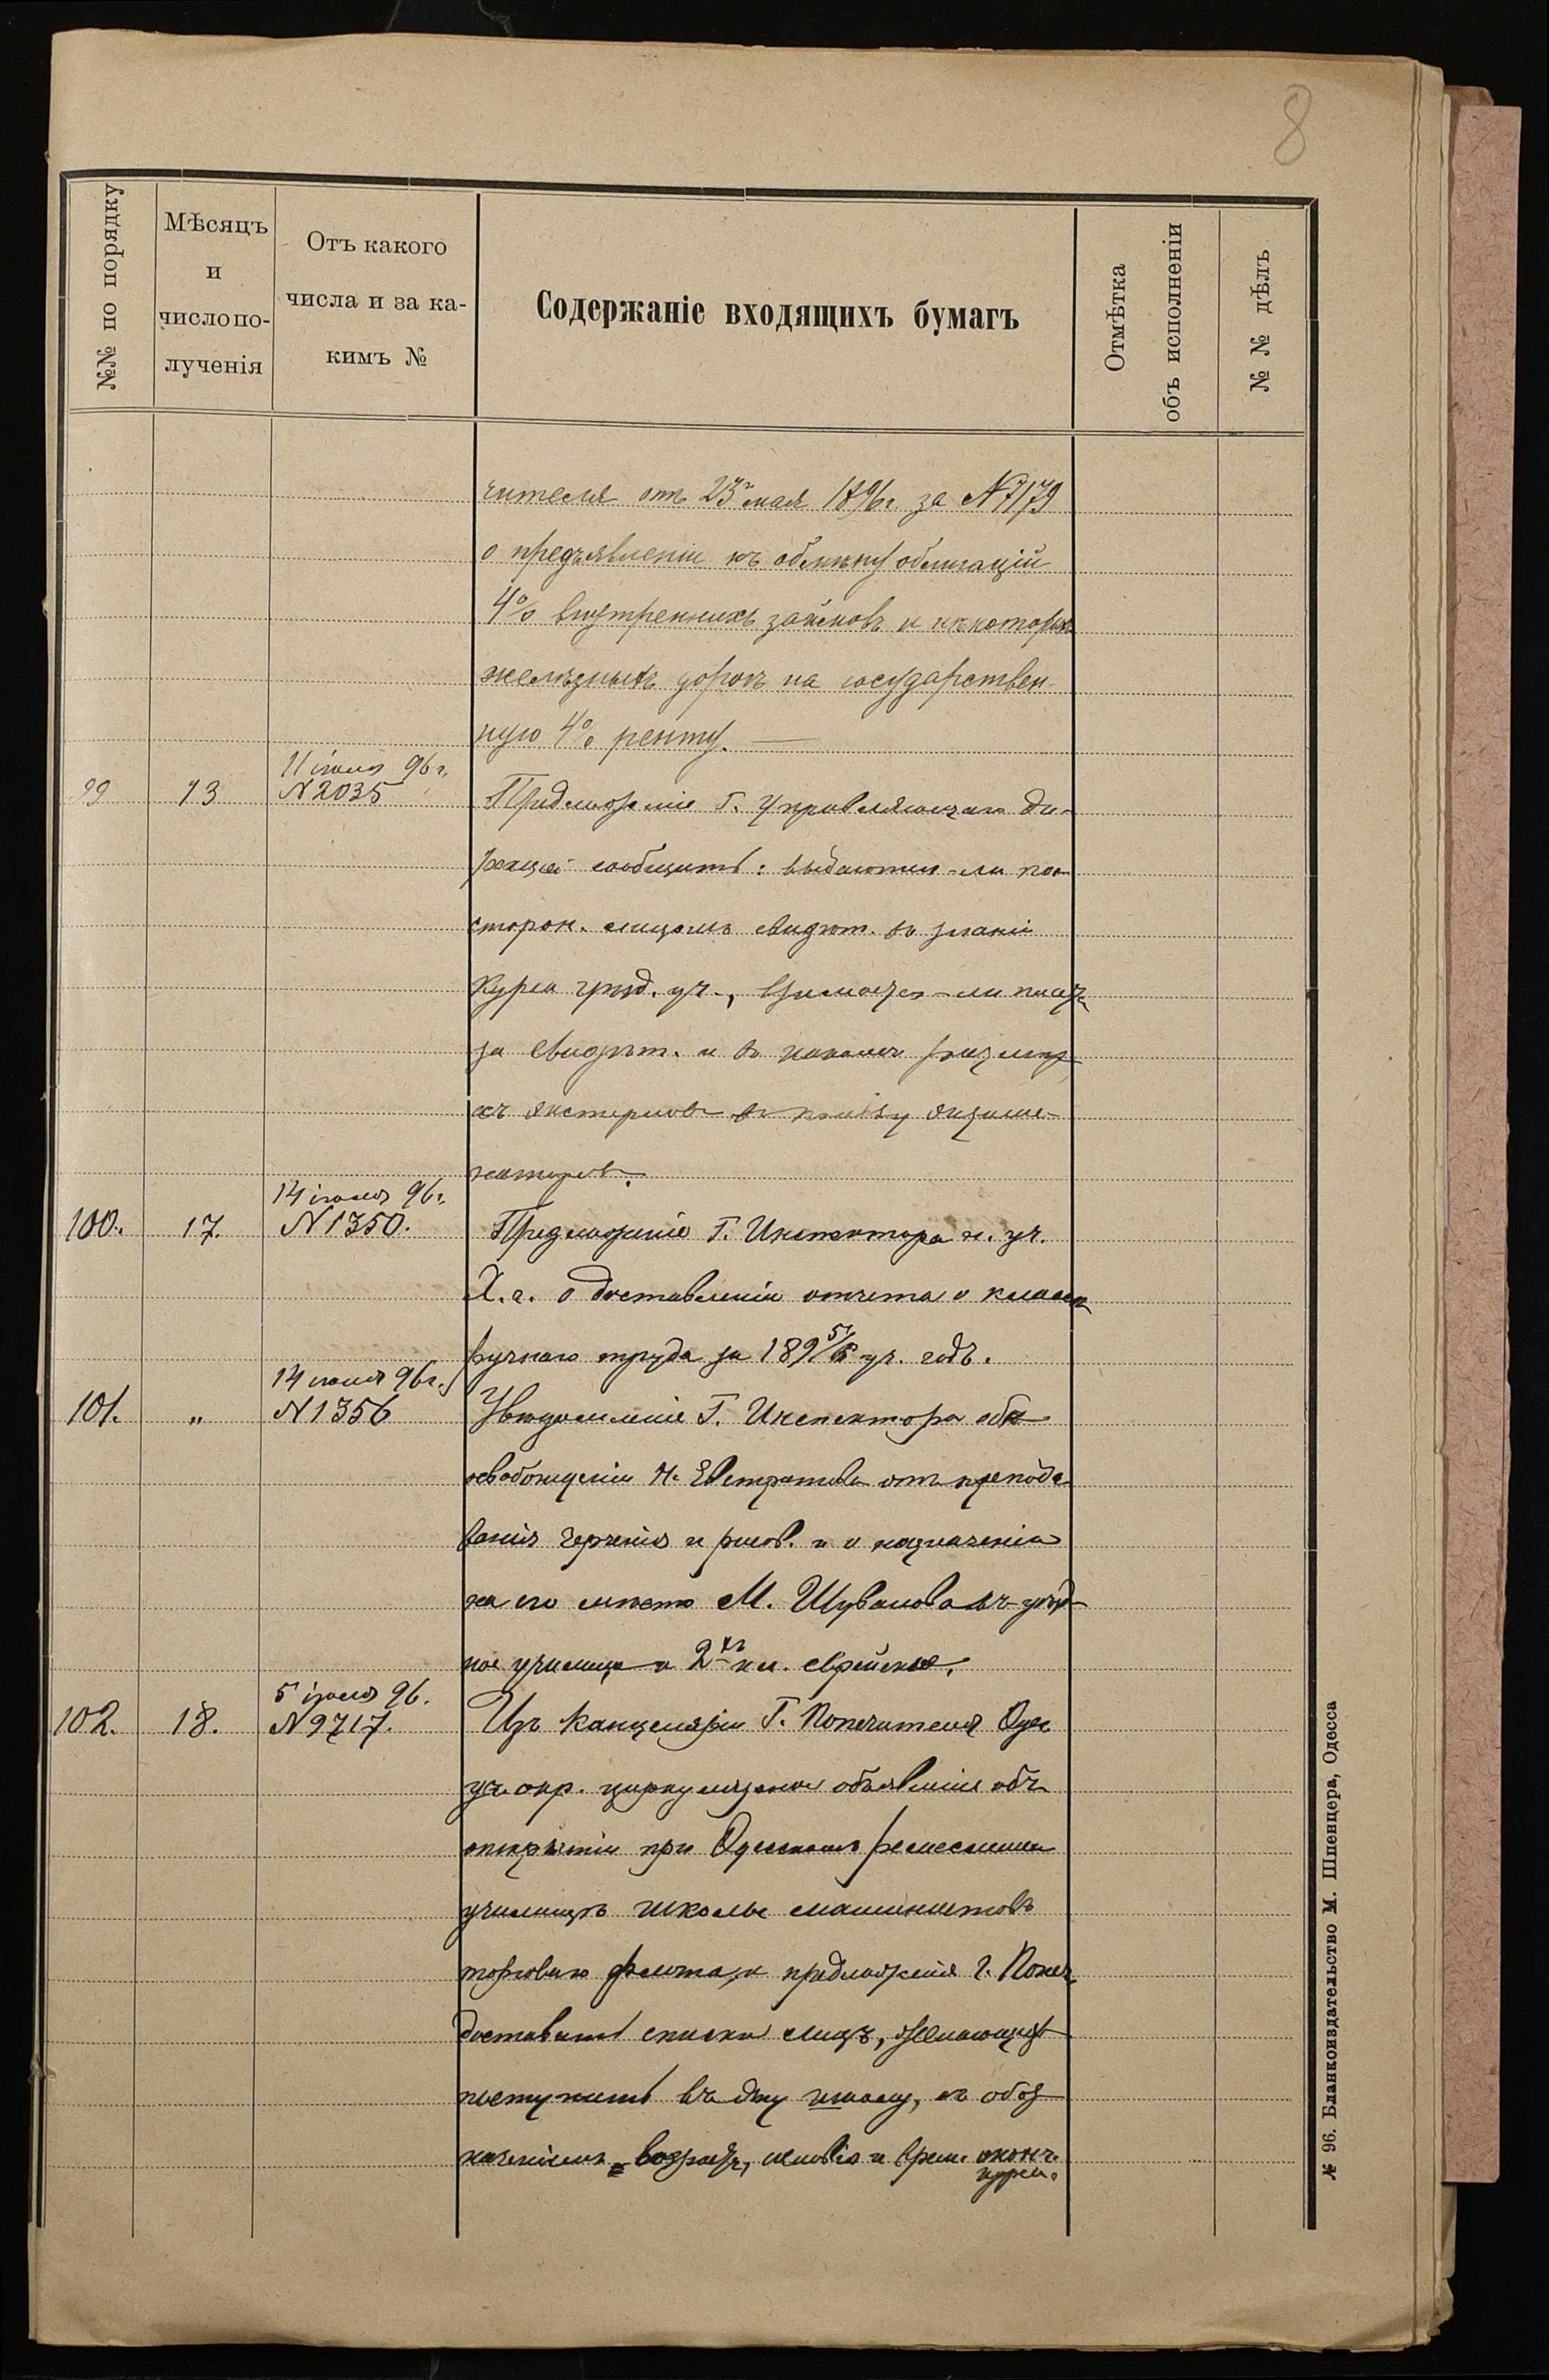 8
№№ по порядку
Мѣсяцъ
и
число по-
лученія
Отъ какого
числа и за ка-
кимъ №
Содержаніе входящихъ бумагъ
Отмѣтка
объ исполненіи
№ № дѣлъ
чителя отъ 23 мая 1896 г. за №7179
о предъявленіи къ обмѣну облигацій
4% внутреннихъ займовъ и нѣкоторыхъ
желѣзныхъ дорогъ на государствен-
ную 4% ренту. —
11 іюня 96 г.
99 13 №2035 Предложеніе Г. Управляющаго ди-
рекціей сообщить: выдаются-ли по-
сторон. лицамъ свидѣт. въ знаніи
курса уѣзд. уч., взимается-ли плата
за свидѣт. и въ какомъ размѣрѣ
съ экстерновъ въ пользу экзаме-
наторовъ.
14 іюня 96 г.
100. 17. №1350. Предложеніе Г. Инспектора н. уч.
Х. г. о доставленіи отчета о классѣ
ручнаго труда за 1895/6 уч. годъ.
14 іюня 96 г.
101. " №1356 Увѣдомленіе Г. Инспектора объ
освобожденіи Н. Евстратова отъ препода-
ванія черченія и рисов. и о назначеніи
на его мѣсто М. Шувалова въ уѣзд-
ное училище и 2хъ кл. еврейское.
5 іюня 96.
102. 18. №9717. Изъ Канцеляріи Г. Попечителя Одес.
уч. окр. циркулярное объявленіе объ
открытіи при Одесскомъ ремесленномъ
училищѣ школы машинистовъ
торговаго флота, и предложенія г. Попеч.
доставить списки лицъ, желающихъ
поступить въ эту школу, съ обоз-
наченіемъ возраста, сословія и врем. оконч.
курса.
№ 96. Бланкоиздательство М. Шпенцера, Одесса